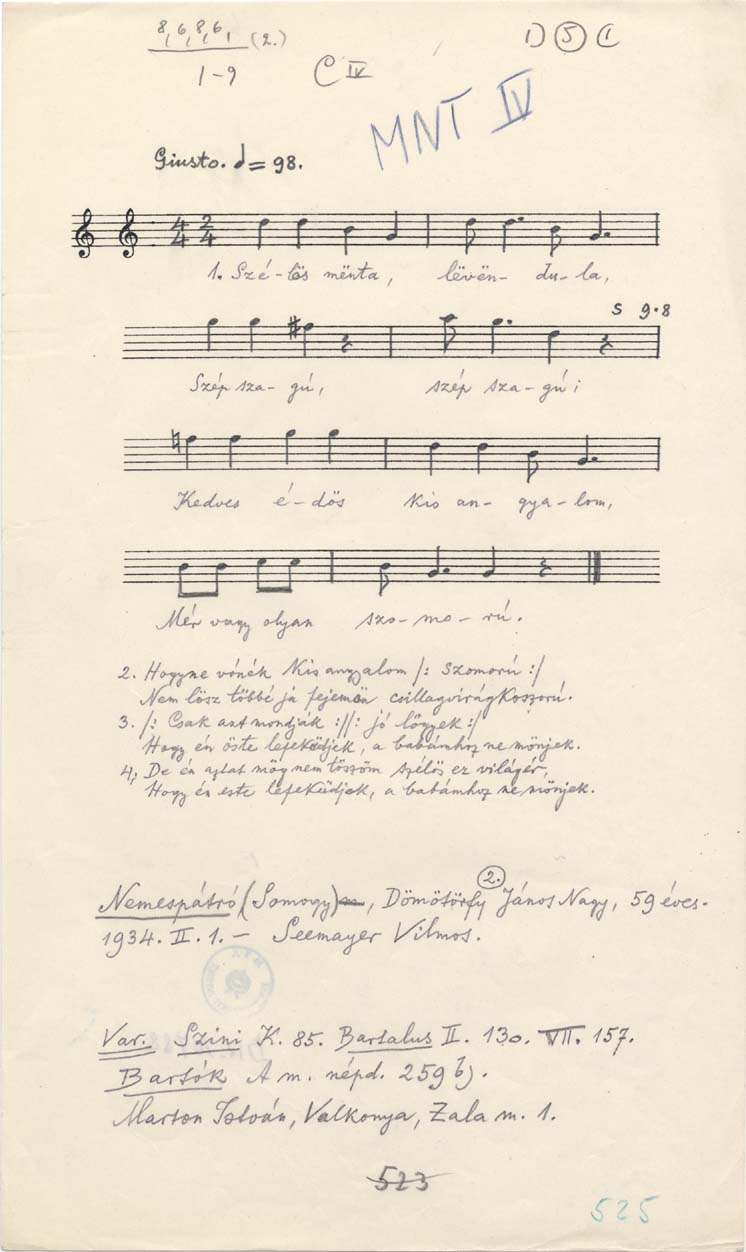 8, 6, 8, 6, (2.)
1-9 C IV
1) 5 (1
MNT IV
Giusto. = 98.
4 2
4 4
1. Szé-lös mënta, lëvën-du-la,
s 9.8
Szép sza-gú, szép sza-gú;
Kedves é-dös kis an-gya-lom,
Mér vagy olyan szo-mo-rú.
2. Hogyne vónék kis angyalom /: szomorú :/
Nem lösz többé já fejemön csillagvirágkoszorú.
3. /: Csak azt mondják :/ /: jó lögyek :/
Hogy én öste lefeküdjek, a babámhoz ne mönjek.
4, De én aztat mög nem töszöm szélös ez világér,
Hogy én este lefeküdjek, a babámhoz ne mönjek.
2.
Nemespátró (Somogy), Dömötörfy János Nagy, 59 éves.
1934. II. 1. - Seemayer Vilmos.
Var. Szini K. 85. Bartalus II. 130. VII. 157.
Bartók A m. népd. 259 b).
Marton István, Valkonya, Zala m. 1.
523
525